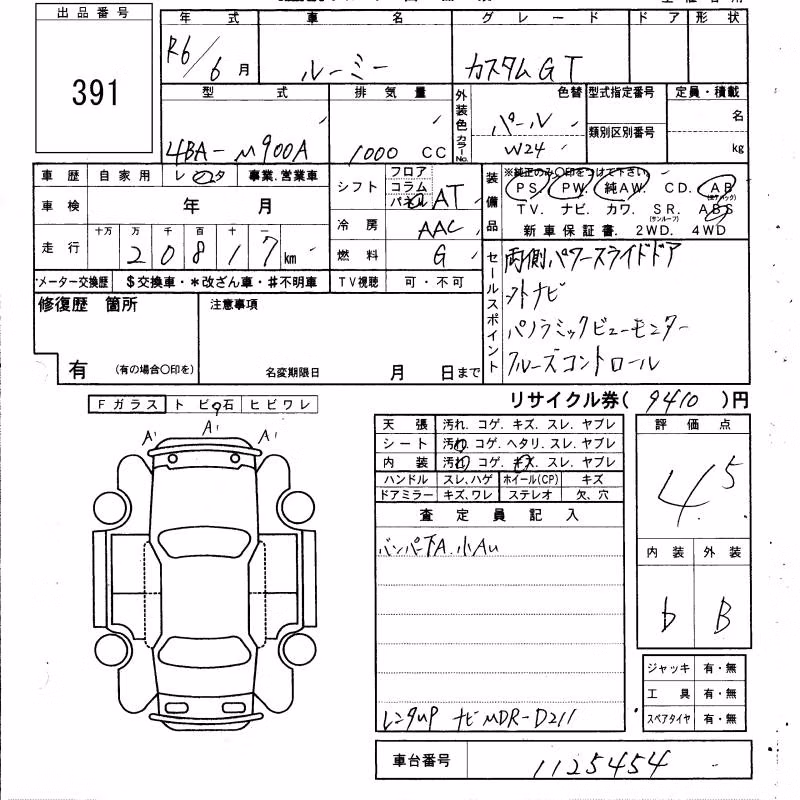 出品番号
391
年 式 車 名 グレード ドア 形 状
R6/6月 ルーミー カスタムGT
型 式 排気量 外装色 カラーNo. 色替 型式指定番号 定員・積載
4BA-M900A 1000 CC パール W24 類別区別番号 名 kg
車歴 自家用 レンタ 事業.営業車
車検 年 月
走行 十万 万 千 百 十 一
20817 km
*メーター交換歴 $交換車・*改ざん車・#不明車
シフト フロア コラム パネル AT
冷房 AAC
燃料 G
TV視聴 可・不可
装備品 ※純正のみ〇印をつけて下さい
PS. PW. 純AW. CD. AB (エアバック)
TV. ナビ. カワ. SR. (サンルーフ) ABS
新車保証書. 2WD. 4WD
セールスポイント
両側パワースライドドア
外ナビ
パノラミックビューモニター
クルーズコントロール
修復歴 箇所 注意事項
有 (有の場合〇印を) 名変期限日 月 日まで
リサイクル券( 9410 )円
Fガラス トビ石 ヒビワレ
A' A' A'
天張 汚れ. コゲ. キズ. スレ. ヤブレ
シート 汚れ. コゲ. ヘタリ. スレ. ヤブレ
内装 汚れ. コゲ. キズ. スレ. ヤブレ
ハンドル スレ、ハゲ ホイール(CP) キズ
ドアミラー キズ、ワレ ステレオ 欠、穴
査定員記入
バンパー下A.小AU
レンタup ナビMDR-D211
評価点
4.5
内装 外装
b B
ジャッキ 有・無
工具 有・無
スペアタイヤ 有・無
車台番号 1125454